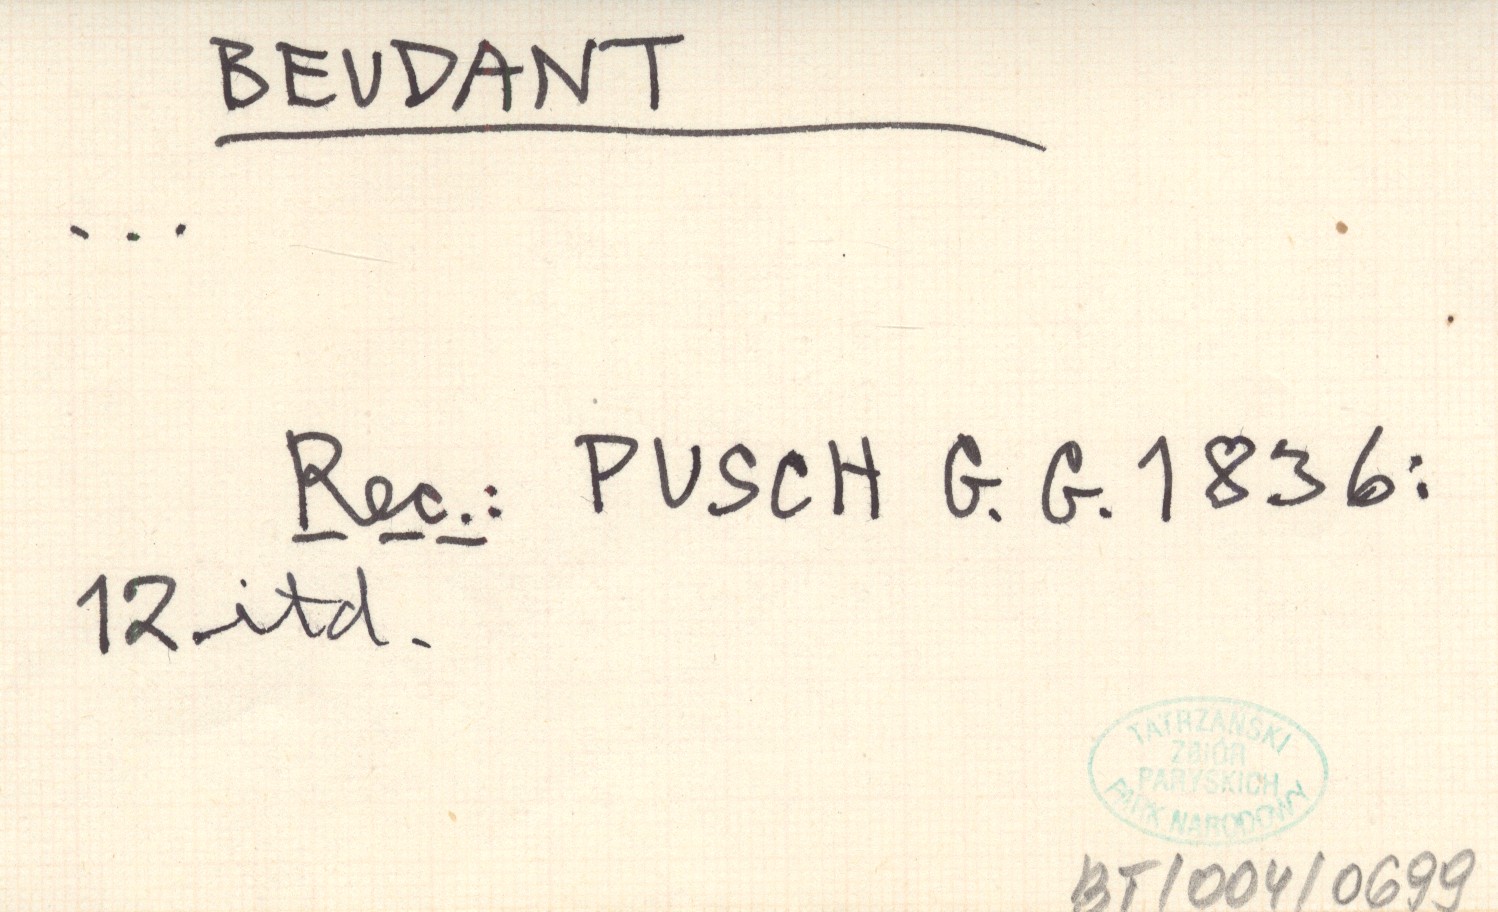 BEUDANT
...
Rec.: PUSCH G. G. 1836:
12 itd.
TATRZAŃSKI
ZBIÓR
PARYSKICH
PARK NARODOWY
BT/004/0699